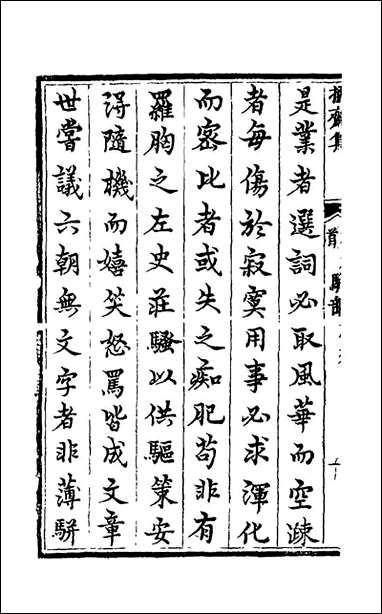 是業者選詞必取風華而空疎
者每傷於寂寞用事必求渾化
而密比者或失之痴肥苟非有
羅胸之左史莊騷以供驅策安
得隨機而嬉笑怒罵皆成文章
世嘗議六朝無文字者非薄駢